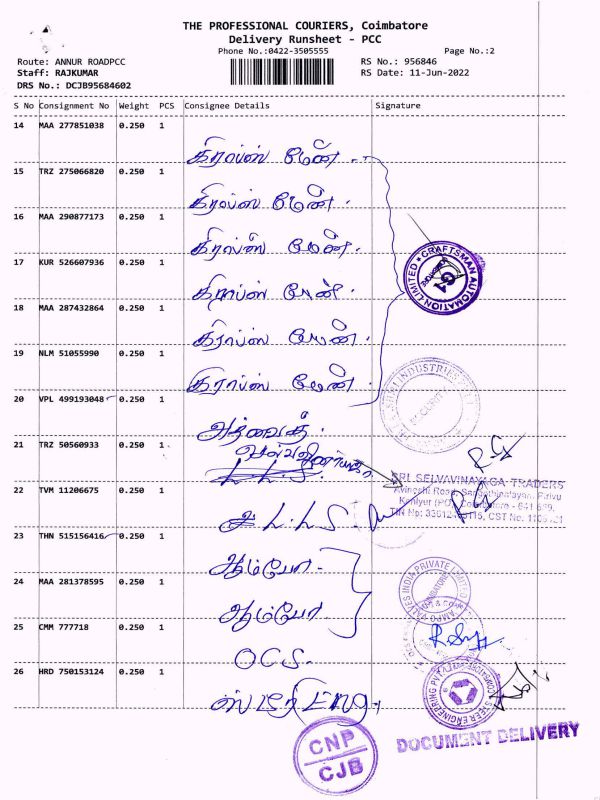 THE PROFESSIONAL COURIERS, Coimbatore
Delivery Runsheet - PCC
Phone No.:0422-3505555
Page No.:2
Route: ANNUR ROADPCC
RS No.: 956846
Staff: RAJKUMAR
RS Date: 11-Jun-2022
DRS No.: DCJB95684602
S No Consignment No Weight PCS Consignee Details Signature
14 MAA 277851038 0.250 1
கிராப்ஸ் மேன்
15 TRZ 275066820 0.250 1
கிராப்ஸ் மேன்
16 MAA 290877173 0.250 1
கிராப்ஸ் மேன்
17 KUR 526607936 0.250 1
கிராப்ஸ் மேன்
CRAFTSMAN AUTOMATION LIMITED
18 MAA 287432864 0.250 1
கிராப்ஸ் மேன்
19 NLM 51055990 0.250 1
கிராப்ஸ் மேன்
20 VPL 499193048 0.250 1
SECURITY
21 TRZ 50560933 0.250 1
SRI SELVAVINAYAGA TRADERS
22 TVM 11206675 0.250 1
L.L.S.
23 THN 515156416 0.250 1
ஆம்போ
24 MAA 281378595 0.250 1
ஆம்போ
AMPO VALVES INDIA PRIVATE LIMITED
25 CMM 777718 0.250 1
OCS.
26 HRD 750153124 0.250 1
ஸ்டீர் Eng
STEER ENGINEERING PVT
CNP
CJB
DOCUMENT DELIVERY